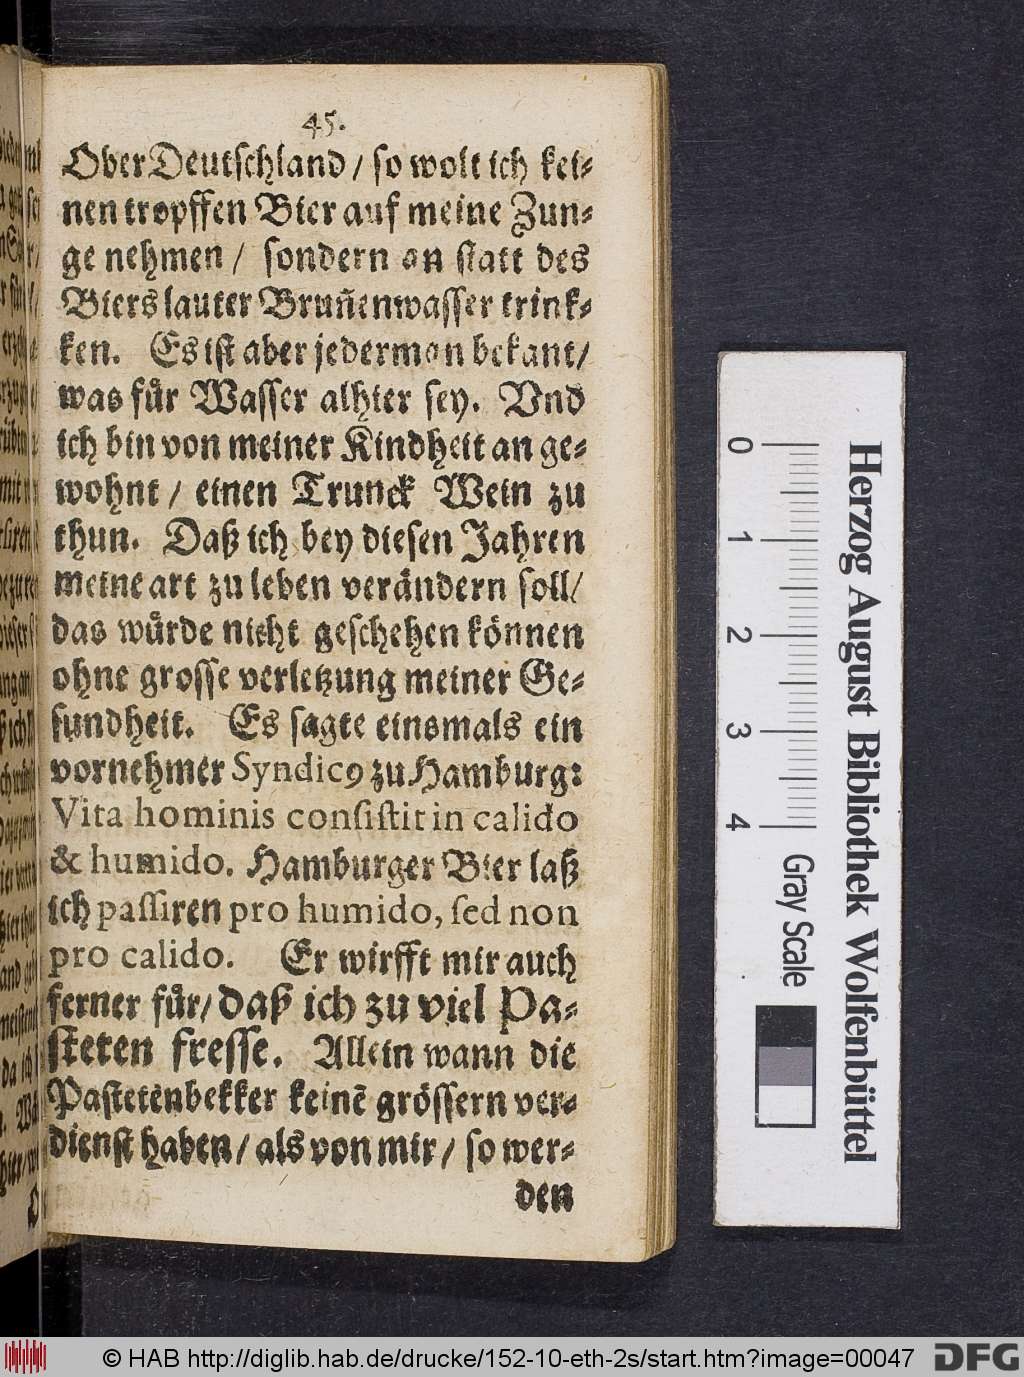 45.
Ober Deutschland / so wolt ich kei-
nen tropffen Bier auf meine Zun-
ge nehmen / sondern an statt des
Biers lauter Brun̄enwasser trink-
ken. Es ist aber jederman bekant /
was fuͤr Wasser alhier sey. Vnd
ich bin von meiner Kindheit an ge-
wohnt / einen Trunck Wein zu
thun. Daß ich bey diesen Jahren
meine art zu leben veraͤndern soll /
das wuͤrde nicht geschehen koͤnnen
ohne grosse verletzung meiner Ge-
sundheit. Es sagte einsmals ein
vornehmer Syndicꝰ zu Hamburg:
Vita hominis consistit in calido
& humido. Hamburger Bier laß
ich passiren pro humido, sed non
pro calido. Er wirfft mir auch
ferner fuͤr / daß ich zu viel Pa-
steten fresse. Allein wann die
Pastetenbekker keinē groͤssern ver-
dienst haben / als von mir / so wer-
den
0 1 2 3 4
Herzog August Bibliothek Wolfenbüttel
Gray Scale
© HAB http://diglib.hab.de/drucke/152-10-eth-2s/start.htm?image=00047
DFG